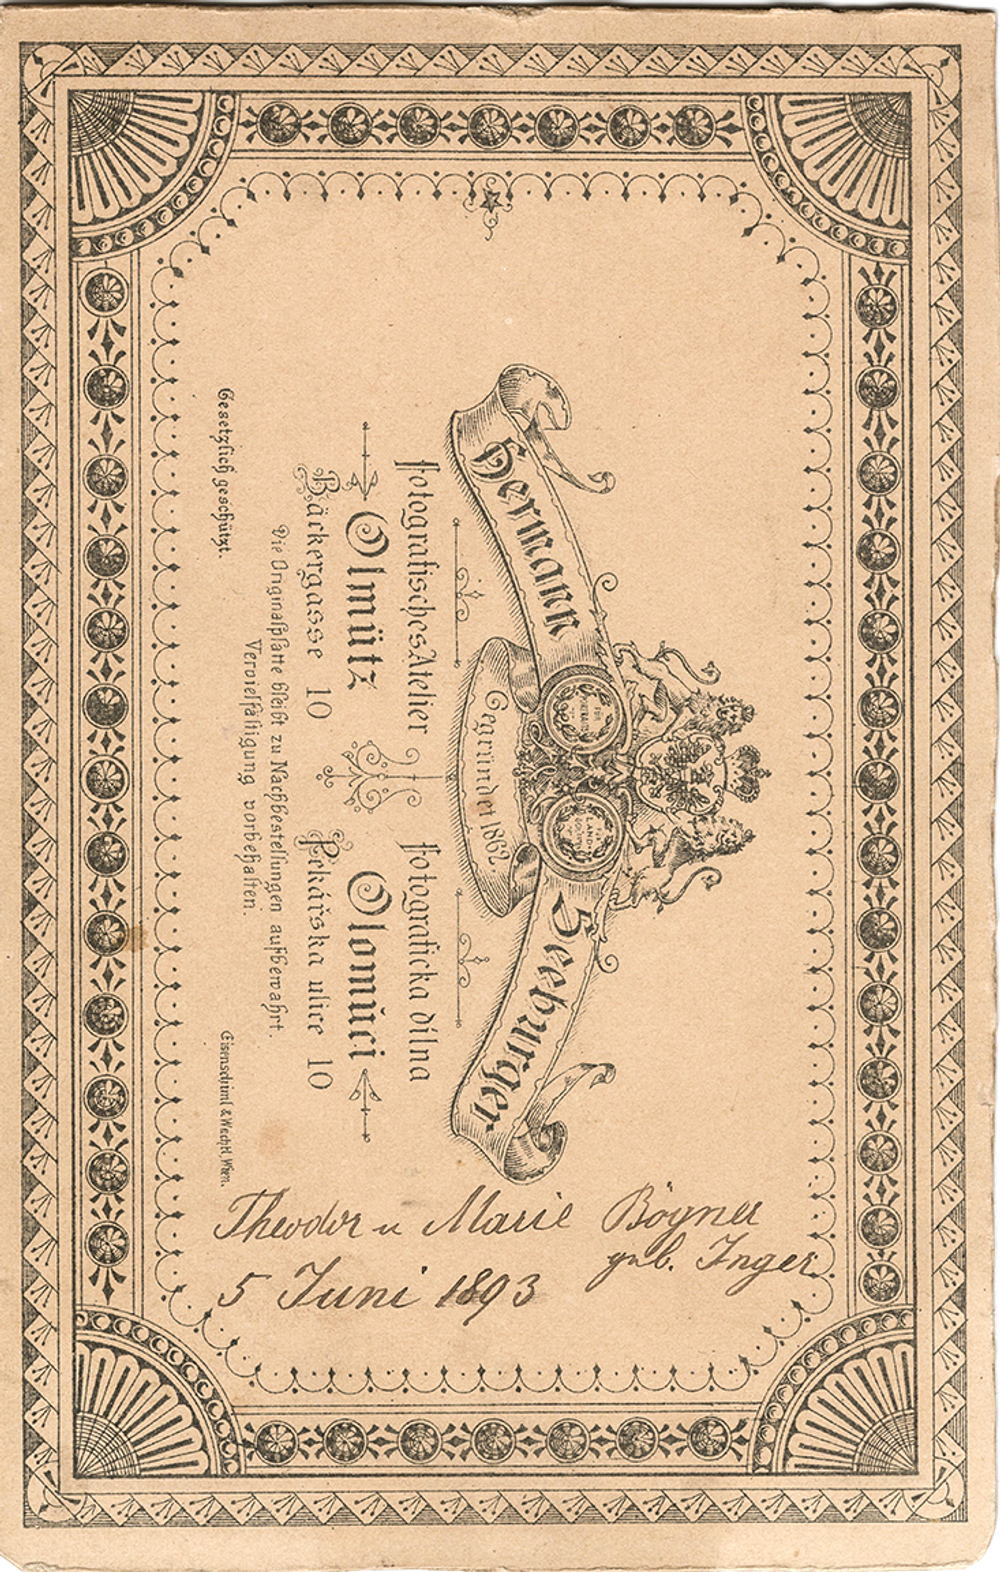 Hermann Seeburger
Gegründet 1862
fotografisches Atelier
Olmütz
Bäckergasse 10
fotograficka dílna
Olomúci
Pekářska ulice 10
Die Originalplatte bleibt zu Nachbestellungen aufbewahrt.
Vervielfältigung vorbehalten.
Gesetzlich geschützt.
Eisenschiml & Wachtl, Wien.
Theodor u Marie Bögner
geb. Inger
5 Juni 1893